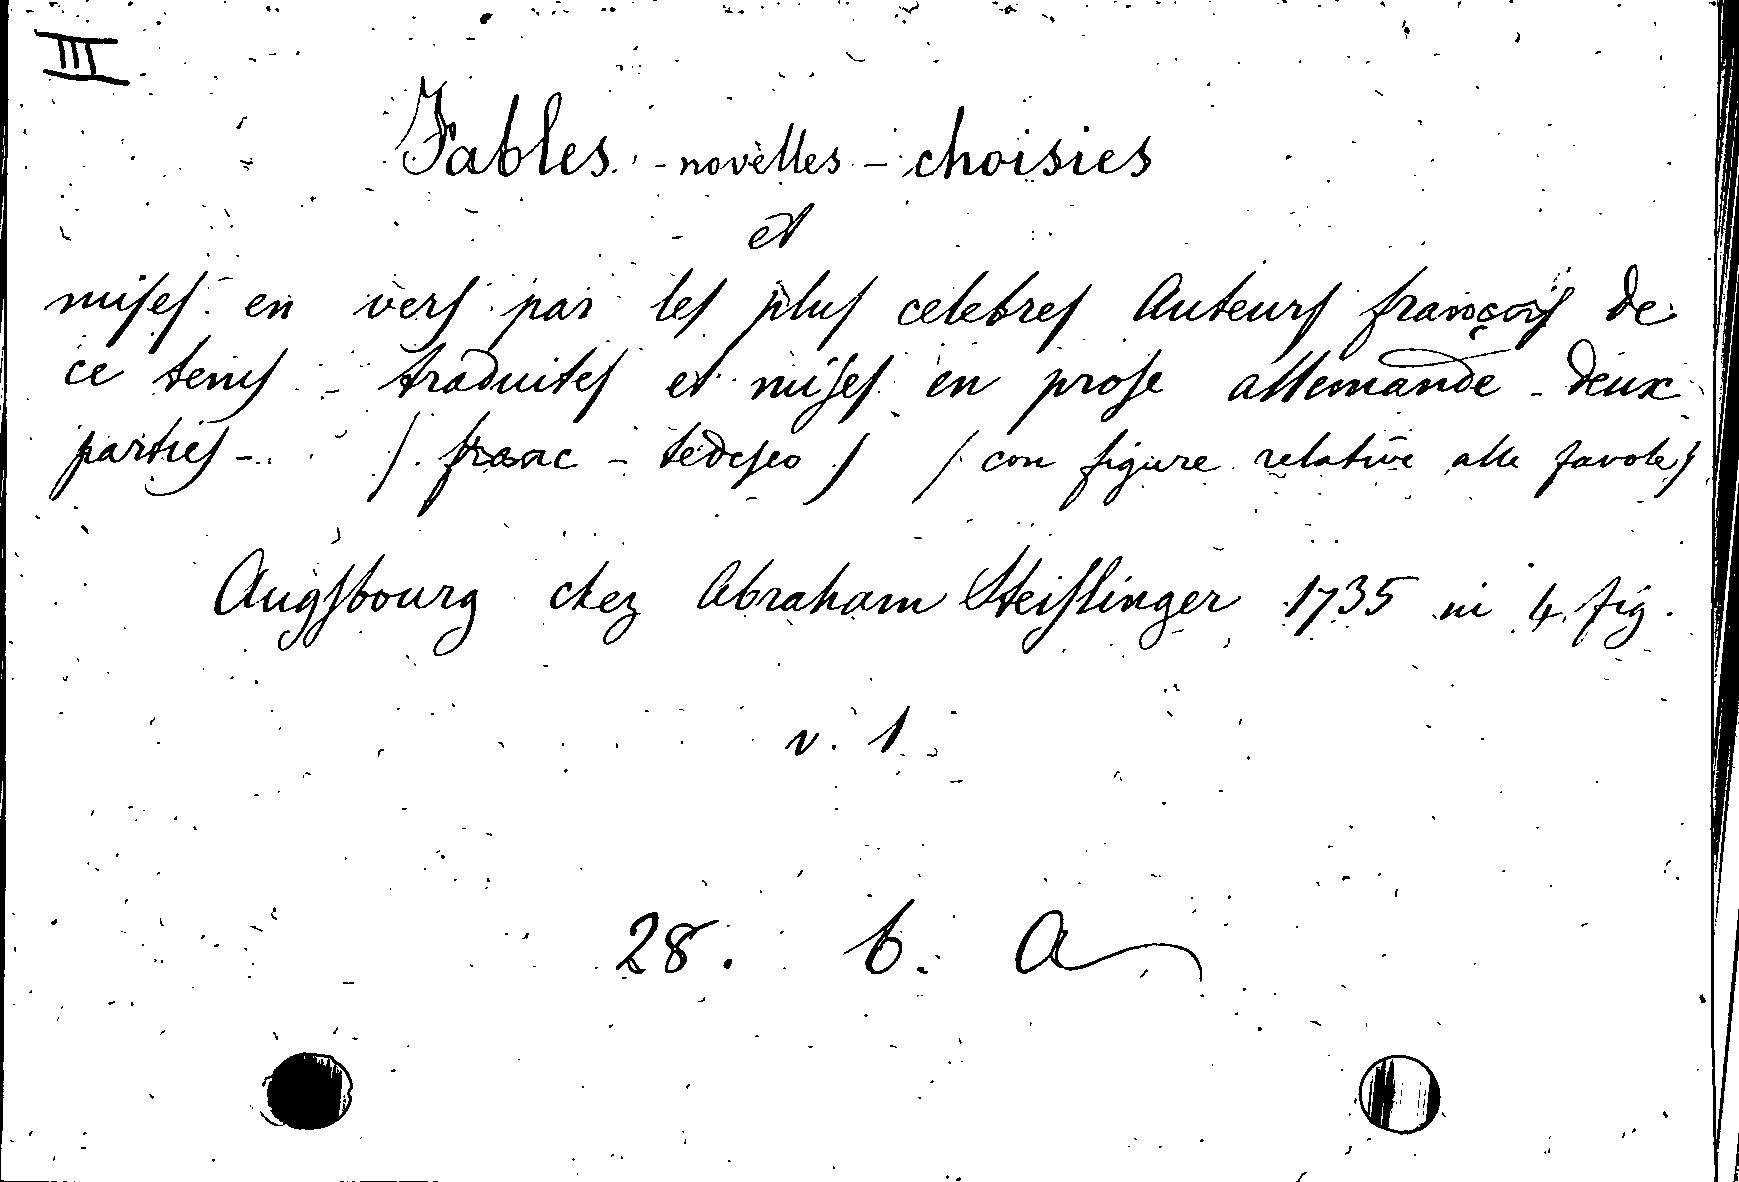 III
Fables - novèlles - choisies
et
mises en vers par les plus celebres Auteurs françois de
ce tems - traduites et mises en prose allemande - deux
parties - ( franc - tedesco ) ( con figure relative alle favole )
Augsbourg chez Abraham Steislinger 1735 in 4. fig.
v. 1
28. b. A